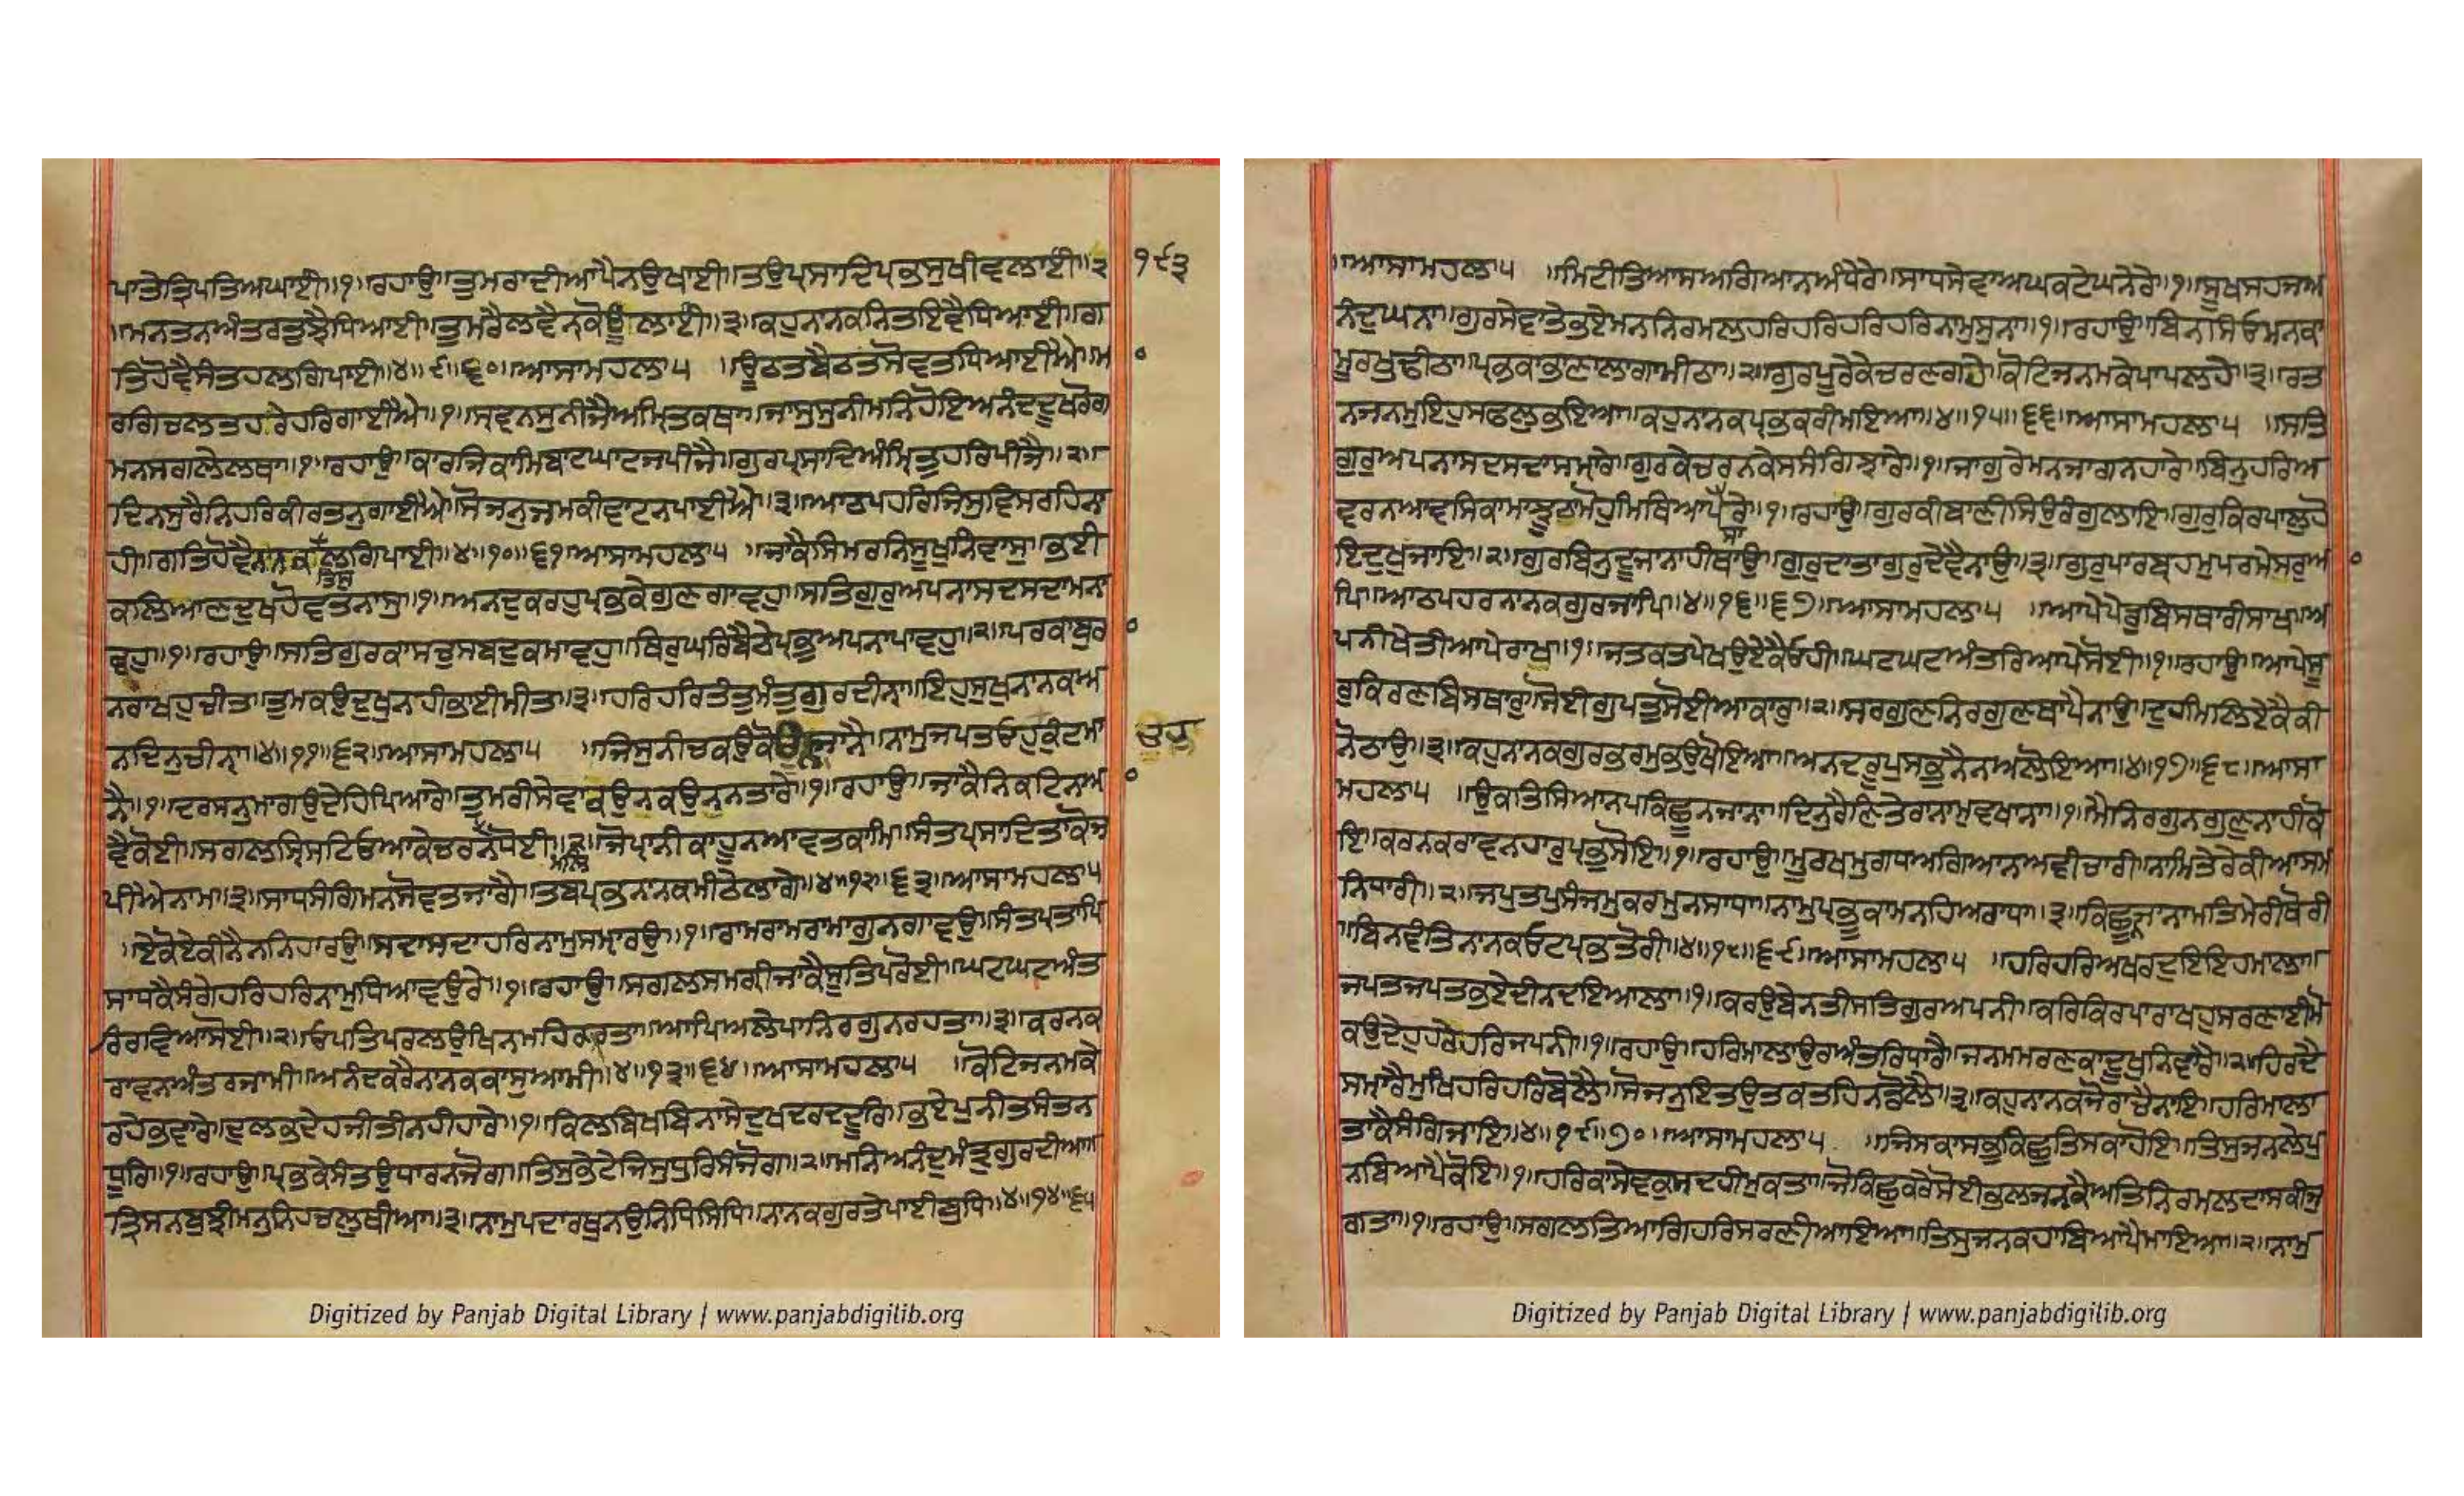 ਪਾਤੇਤ੍ਰਿਪਤਿਅਘਾਈ॥੧॥ਰਹਾਉ॥ਤੁਮਰਾਦੀਆਪੈਨਉਖਾਈ॥ਤਉਪ੍ਰਸਾਦਿਪ੍ਰਭਸੁਖੀਵਲਾਈ॥੨
॥ਮਨਤਨਅੰਤਰਤੁਝੈਧਿਆਈ॥ਤੁਮਰੈਲਵੈਨਕੋਊਲਾਈ॥੩॥ਕਹੁਨਾਨਕਨਿਤਇਵੈਧਿਆਈ॥ਗ
ਤਿਹੋਵੈਸੰਤਹਲਗਿਪਾਈ॥੪॥੯॥੬੦॥ਆਸਾਮਹਲਾ੫ ॥ਊਠਤਬੈਠਤਸੋਵਤਧਿਆਈਐ॥ਮ
ਰਗਿਚਲਤਹਰੇਹਰਿਗਾਈਐ॥੧॥ਸ੍ਰਵਨਸੁਨੀਜੈਅੰਮ੍ਰਿਤਕਥਾ॥ਜਾਸੁਸੁਨੀਮਨਿਹੋਇਅਨੰਦਦੂਖਰੋਗ
ਮਨਸਗਲੇਲਥਾ॥੧॥ਰਹਾਉ॥ਕਾਰਜਿਕਾਮਿਬਾਟਘਾਟਜਪੀਜੈ॥ਗੁਰਪ੍ਰਸਾਦਿਅੰਮ੍ਰਿਤੁਹਰਿਪੀਜੈ॥੨॥
ਦਿਨਸੁਰੈਨਿਹਰਿਕੀਰਤਨੁਗਾਈਐ॥ਸੋਜਨੁਜਮਕੀਵਾਟਨਪਾਈਐ॥੩॥ਆਠਪਹਰਿਜਿਸੁਵਿਸਰਹਿਨਾ
ਹੀ॥ਗਤਿਹੋਵੈਨਾਨਕਲਗਿਪਾਈ॥੪॥੧੦॥੬੧॥ਆਸਾਮਹਲਾ੫ ॥ਜਾਕੈਸਿਮਰਨਿਸੂਖਨਿਵਾਸੁ॥ਭਈ
ਤਿਸੁ
ਕਲਿਆਣਦੁਖਹੋਵਤਨਾਸੁ॥੧॥ਅਨਦੁਕਰਹੁਪ੍ਰਭਕੇਗੁਣਗਾਵਹੁ॥ਸਤਿਗੁਰੁਅਪਨਾਸਦਸਦਾਮਨਾ
ਵਹੁ॥੧॥ਰਹਾਉ॥ਸਤਿਗੁਰਕਾਸਚੁਸਬਦੁਕਮਾਵਹੁ॥ਥਿਰੁਘਰਿਬੈਠੇਪ੍ਰਭੁਅਪਨਾਪਾਵਹੁ॥੨॥ਪਰਕਾਬੁਰ
ਨਰਾਖਹੁਚੀਤ॥ਤੁਮਕਉਦੁਖੁਨਾਹੀਭਾਈਮੀਤ॥੩॥ਹਰਿਹਰਿਤੰਤੁਮੰਤੁਗੁਰਦੀਨਾ॥ਇਹੁਸੁਖੁਨਾਨਕਅ
ਨਦਿਨੁਚੀਨਾ॥੪॥੧੧॥੬੨॥ਆਸਾਮਹਲਾ੫ ॥ਜਿਸੁਨੀਚਕਉਕੋਈਨਜਾਨੈ॥ਨਾਮੁਜਪਤਓਹੁਚਹੁਕੁੰਟਮਾ
ਨੈ॥੧॥ਦਰਸਨੁਮਾਗਉਦੇਹਿਪਿਆਰੇ॥ਤੁਮਰੀਸੇਵਾਕਉਨਕਉਨਨਤਾਰੇ॥੧॥ਰਹਾਉ॥ਜਾਕੈਨਿਕਟਿਨਆ
ਵੈਕੋਈ॥ਸਗਲਸ੍ਰਿਸਟਿਓਆਕੇਚਰਨਧੋਈ॥੨॥ਜੋਪ੍ਰਾਨੀਕਾਹੂਨਆਵਤਕਾਮਿ॥ਸੰਤਪ੍ਰਸਾਦਿਤਾਕੋਜ
ਪੀਐਨਾਮ॥੩॥ਸਾਧਸੰਗਿਮਨਸੋਵਤਜਾਗੇ॥ਤਬਪ੍ਰਭਨਾਨਕਮੀਠੇਲਾਗੇ॥੪॥੧੨॥੬੩॥ਆਸਾਮਹਲਾ੫
॥ਏਕੋਏਕੀਨੈਨਨਿਹਾਰਉ॥ਸਦਾਸਦਾਹਰਿਨਾਮੁਸਮ੍ਹਾਰਉ॥੧॥ਰਾਮਰਾਮਰਾਮਾਗੁਨਗਾਵਉ॥ਸੰਤਪ੍ਰਤਾਪਿ
ਸਾਧਕੈਸੰਗੇਹਰਿਹਰਿਨਾਮੁਧਿਆਵਉਰੇ॥੧॥ਰਹਾਉ॥ਸਗਲਸਮਗ੍ਰੀਜਾਕੈਸੂਤਿਪਰੋਈ॥ਘਟਘਟਅੰਤ
ਰਿਰਵਿਆਸੋਈ॥੨॥ਓਪਤਿਪਰਲਉਖਿਨਮਹਿਕਰਤਾ॥ਆਪਿਅਲੇਪਾਨਿਰਗੁਨਰਹਤਾ॥੩॥ਕਰਨਕ
ਰਾਵਨਅੰਤਰਜਾਮੀ॥ਅਨੰਦਕਰੈਨਾਨਕਕਾਸੁਆਮੀ॥੪॥੧੩॥੬੪॥ਆਸਾਮਹਲਾ੫ ॥ਕੋਟਿਜਨਮਕੇ
ਰਹੇਭਵਾਰੇ॥ਦੁਲਭਦੇਹਜੀਤੀਨਹੀਹਾਰੇ॥੧॥ਕਿਲਬਿਖਬਿਨਾਸੇਦੁਖਦਰਦਦੂਰਿ॥ਭਏਪੁਨੀਤਸੰਤਨ
ਧੂਰਿ॥੧॥ਰਹਾਉ॥ਪ੍ਰਭਕੇਸੰਤਉਧਾਰਨਜੋਗ॥ਤਿਸੁਭੇਟੇਜਿਸੁਧੁਰਿਸੰਜੋਗ॥੨॥ਮਨਿਅਨੰਦੁਮੰਤ੍ਰੁਗੁਰਦੀਆ॥
ਤ੍ਰਿਸਨਬੁਝੀਮਨੁਨਿਹਚਲੁਥੀਆ॥੩॥ਨਾਮੁਪਦਾਰਥੁਨਉਨਿਧਿਸਿਧਿ॥ਨਾਨਕਗੁਰਤੇਪਾਈਬੁਧਿ॥੪॥੧੪॥੬੫
੧੯੩
Digitized by Panjab Digital Library | www.panjabdigilib.org
॥ਆਸਾਮਹਲਾ੫ ॥ਮਿਟੀਤਿਆਸਅਗਿਆਨਅੰਧੇਰੇ॥ਸਾਧਸੇਵਾਅਘਕਟੇਘਨੇਰੇ॥੧॥ਸੂਖਸਹਜਅ
ਨੰਦੁਘਨਾ॥ਗੁਰਸੇਵਾਤੇਭਏਮਨਨਿਰਮਲਹਰਿਹਰਿਹਰਿਹਰਿਨਾਮੁਸੁਨਾ॥੧॥ਰਹਾਉ॥ਬਿਨਸਿਓਮਨਕਾ
ਮੂਰਖੁਢੀਠਾ॥ਪ੍ਰਭਕਾਭਾਣਾਲਾਗਾਮੀਠਾ॥੨॥ਗੁਰਪੂਰੇਕੇਚਰਣਗਹੇ॥ਕੋਟਿਜਨਮਕੇਪਾਪਲਹੇ॥੩॥ਰਤ
ਨਜਨਮੁਇਹੁਸਫਲੁਭਇਆ॥ਕਹੁਨਾਨਕਪ੍ਰਭਕਰੀਮਇਆ॥੪॥੧੫॥੬੬॥ਆਸਾਮਹਲਾ੫ ॥ਸਤਿ
ਗੁਰੁਅਪਨਾਸਦਸਦਾਸਮ੍ਹਾਰੇ॥ਗੁਰਕੇਚਰਨਕੇਸਸੰਗਿਝਾਰੇ॥੧॥ਜਾਗੁਰੇਮਨਜਾਗਨਹਾਰੇ॥ਬਿਨੁਹਰਿਅ
ਵਰੁਨਆਵਸਿਕਾਮਾਝੂਠਾਮੋਹੁਮਿਥਿਆਪਸਾਰੇ॥੧॥ਰਹਾਉ॥ਗੁਰਕੀਬਾਣੀਸਿਉਰੰਗੁਲਾਇ॥ਗੁਰੁਕਿਰਪਾਲੁਹੋ
ਇਦੁਖੁਜਾਇ॥੨॥ਗੁਰਬਿਨੁਦੂਜਾਨਾਹੀਥਾਉ॥ਗੁਰੁਦਾਤਾਗੁਰੁਦੇਵੈਨਾਉ॥੩॥ਗੁਰੁਪਾਰਬ੍ਰਹਮੁਪਰਮੇਸਰੁਆ
ਪਿ॥ਆਠਪਹਰਨਾਨਕਗੁਰਜਾਪਿ॥੪॥੧੬॥੬੭॥ਆਸਾਮਹਲਾ੫ ॥ਆਪੇਪੇਡੁਬਿਸਥਾਰੀਸਾਖ॥ਅ
ਪਨੀਖੇਤੀਆਪੇਰਾਖ॥੧॥ਜਤਕਤਪੇਖਉਏਕੈਓਹੀ॥ਘਟਘਟਅੰਤਰਿਆਪੇਸੋਈ॥੧॥ਰਹਾਉ॥ਆਪੇਸੂ
ਰੁਕਿਰਣਬਿਸਥਾਰੁ॥ਸੋਈਗੁਪਤੁਸੋਈਆਕਾਰੁ॥੨॥ਸਰਗੁਣਨਿਰਗੁਣਥਾਪੈਨਾਉ॥ਦੁਹਮਿਲਿਏਕੈਕੀ
ਨੋਠਾਉ॥੩॥ਕਹੁਨਾਨਕਗੁਰਭ੍ਰਮੁਭਉਖੋਇਆ॥ਅਨਦਰੂਪੁਸਭੁਨੈਨਅਲੋਇਆ॥੪॥੧੭॥੬੮॥ਆਸਾ
ਮਹਲਾ੫ ॥ਉਕਤਿਸਿਆਨਪਕਿਛੂਨਜਾਨਾ॥ਦਿਨੁਰੈਣਿਤੇਰਾਨਾਮੁਵਖਾਨਾ॥੧॥ਮੈਨਿਰਗੁਨਗੁਣੁਨਾਹੀਕੋ
ਇ॥ਕਰਨਕਰਾਵਨਹਾਰੁਪ੍ਰਭੁਸੋਇ॥੧॥ਰਹਾਉ॥ਮੂਰਖਮੁਗਧਅਗਿਆਨਅਵੀਚਾਰੀ॥ਨਾਮਿਤੇਰੇਕੀਆਸਮ
ਨਿਧਾਰੀ॥੨॥ਜਪੁਤਪੁਸੰਜਮੁਕਰਮੁਨਸਾਧਾ॥ਨਾਮੁਪ੍ਰਭੂਕਾਮਨਹਿਅਰਾਧਾ॥੩॥ਕਿਛੂਨਜਾਨਾਮਤਿਮੇਰੀਥੋਰੀ
॥ਬਿਨਵੰਤਿਨਾਨਕਓਟਪ੍ਰਭਤੋਰੀ॥੪॥੧੮॥੬੯॥ਆਸਾਮਹਲਾ੫ ॥ਹਰਿਹਰਿਅਖਰਦੁਇਇਹਮਾਲਾ॥
ਜਪਤਜਪਤਭਏਦੀਨਦਇਆਲਾ॥੧॥ਕਰਉਬੇਨਤੀਸਤਿਗੁਰਅਪਨੀ॥ਕਰਿਕਿਰਪਾਰਾਖਹੁਸਰਣਾਈਮੋ
ਕਉਦੇਹੁਹਰੇਹਰਿਜਪਨੀ॥੧॥ਰਹਾਉ॥ਹਰਿਮਾਲਾਉਰਅੰਤਰਿਧਾਰੈ॥ਜਨਮਮਰਣਕਾਦੂਖੁਨਿਵਾਰੈ॥੨॥ਹਿਰਦੈ
ਸਮਾਰੈਮੁਖਿਹਰਿਹਰਿਬੋਲੈ॥ਸੋਜਨੁਇਤਉਤਕਤਹਿਨਡੋਲੈ॥੩॥ਕਹੁਨਾਨਕਜੋਰਾਚੈਨਾਇ॥ਹਰਿਮਾਲਾ
ਤਾਕੈਸੰਗਿਜਾਇ॥੪॥੧੯॥੭੦॥ਆਸਾਮਹਲਾ੫ ॥ਜਿਸਕਾਸਭੁਕਿਛੁਤਿਸਕਾਹੋਇ॥ਤਿਸੁਜਨਲੇਪੁ
ਨਬਿਆਪੈਕੋਇ॥੧॥ਹਰਿਕਾਸੇਵਕੁਸਦਹੀਮੁਕਤਾ॥ਜੋਕਿਛੁਕਰੇਸੋਈਭਲਜਨਕੈਅਤਿਨਿਰਮਲਦਾਸਕੀਜੁ
ਗਤਾ॥੧॥ਰਹਾਉ॥ਸਗਲਤਿਆਗਿਹਰਿਸਰਣੀਆਇਆ॥ਤਿਸੁਜਨਕਹਾਬਿਆਪੈਮਾਇਆ॥੨॥ਨਾਮੁ
Digitized by Panjab Digital Library | www.panjabdigilib.org